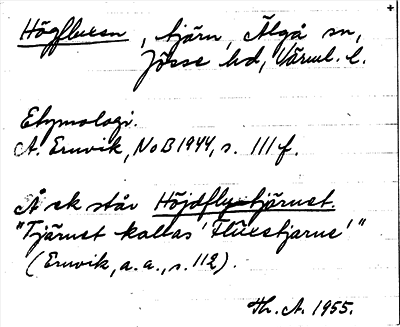 Högfluxen, tjärn, Älgå sn,
Jösse hd, Värml. l.
Etymologi.
A. Ernvik, NoB 1944, s. 111 f.
Å ek står Höjdflytjärnet.
"Tjärnet kallas 'Fluxstjarne'"
(Ernvik, a.a., s. 112).
Th. A. 1955.